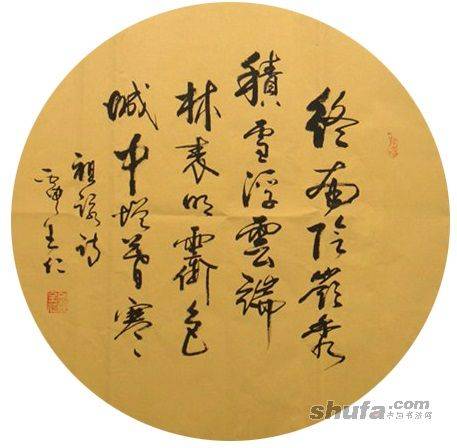 終南陰嶺秀
積雪浮雲端
林表明霽色
城中增暮寒
祖詠詩
王仁
shufa.com
中国书法网